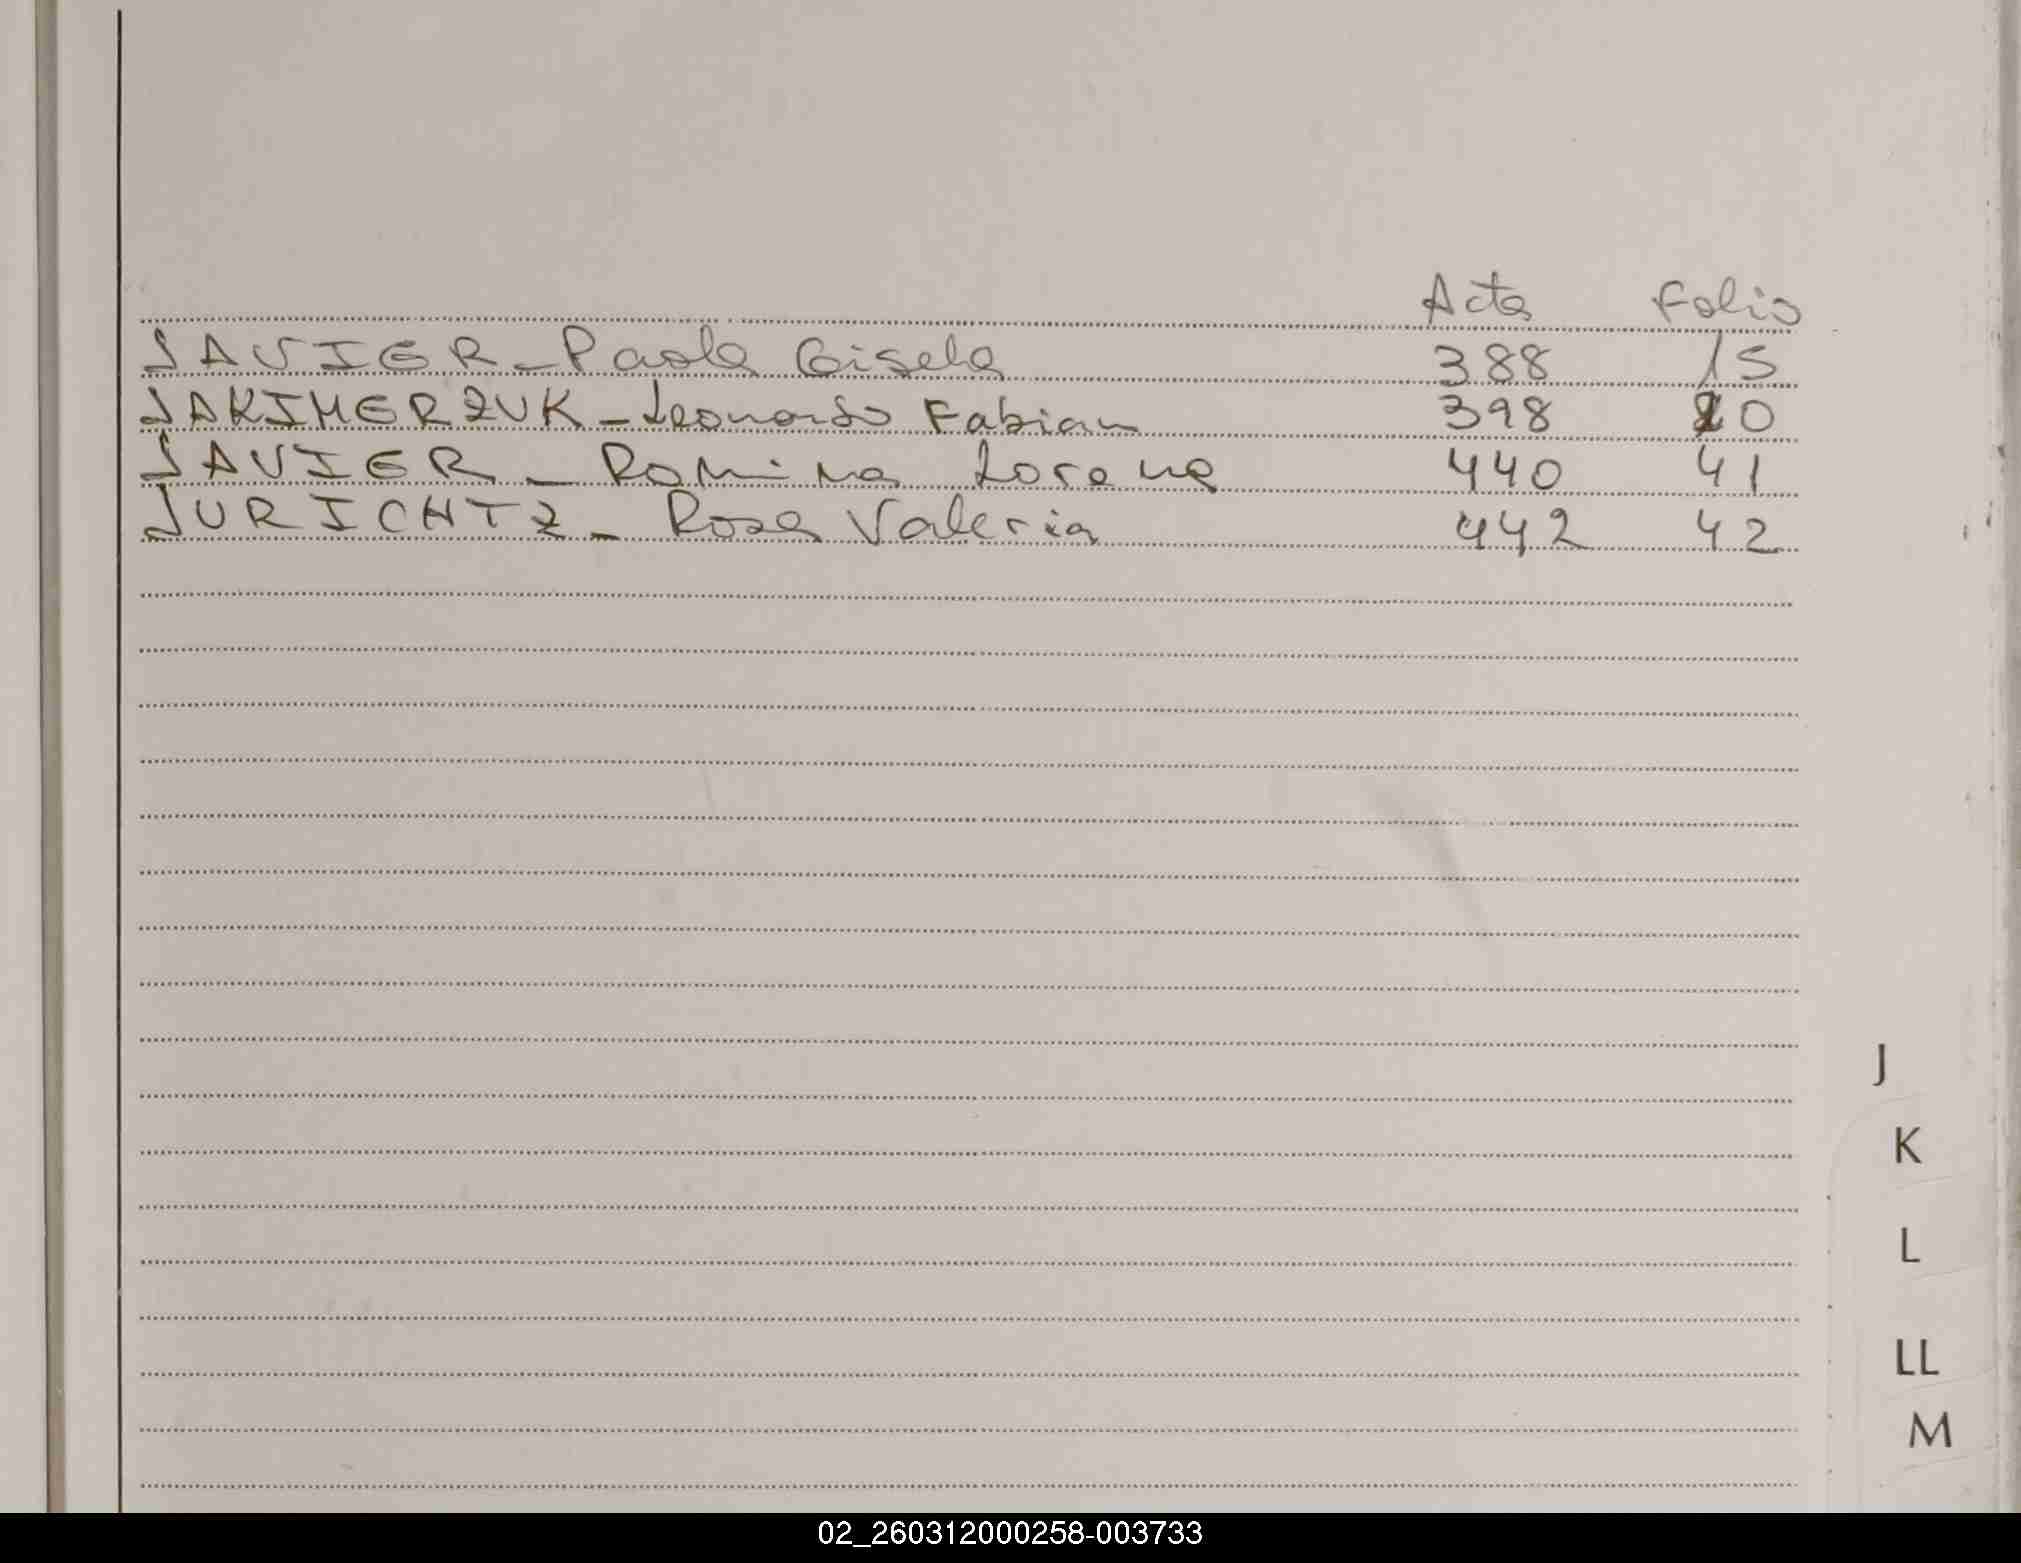 Acta Folio
JAVIER - Paola Gisela 388 15
JAKIMERZUK - Leonardo Fabian 398 20
JAVIER - Romina Lorena 440 41
JURICHTZ - Rosa Valeria 442 42
J
K
L
LL
M
02_260312000258-003733